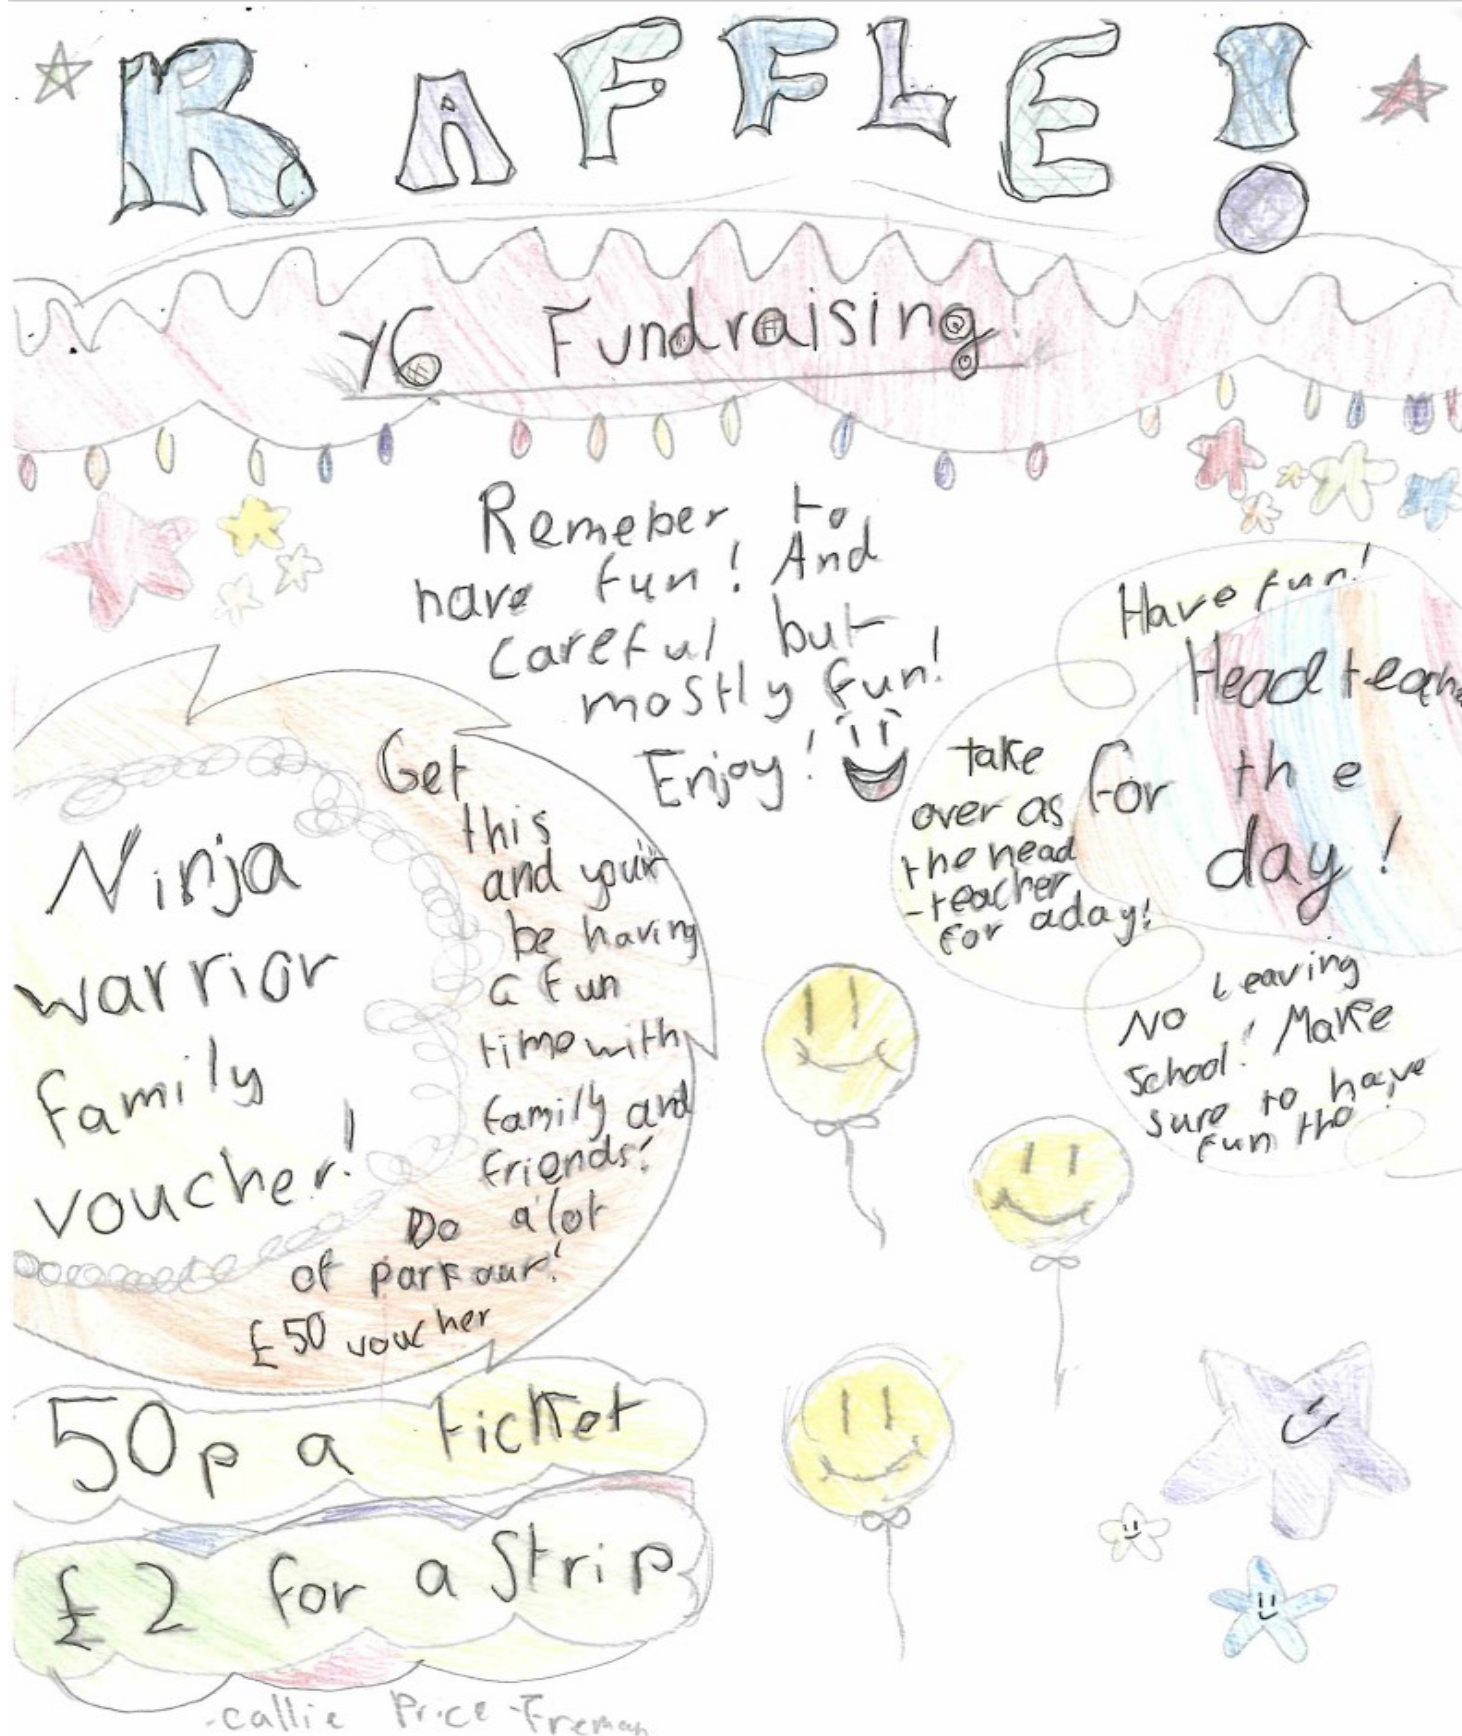 RAFFLE!
Y6 Fundraising!
Remeber to
have fun! And
careful but
mostly fun!
Enjoy!
Ninja
warrior
family
voucher!
Get
this
and
be having
a fun
time with
family and
friends!
Do a lot
of parkour!
£50 voucher
Have fun!
Head teache
for the
day!
take
over as
the head
-teacher
for a day!
No Leaving
School! Make
sure to have
fun tho!
50p a ticket
£2 for a Strip
-Callie Price-Freman